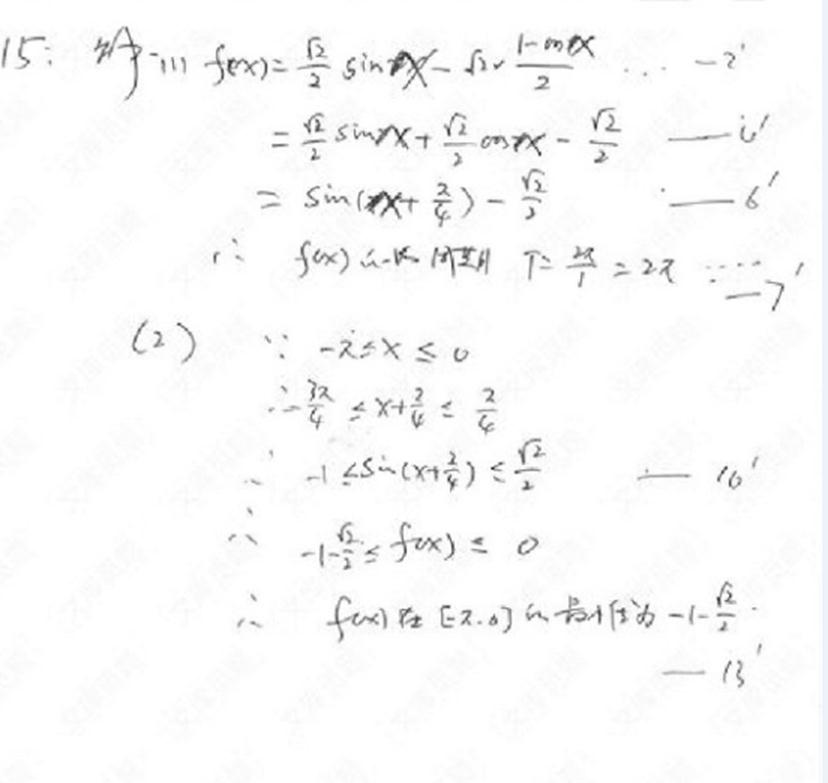 15: 解:(1) f(x)=√2/2 sinx-√2·(1-cosx)/2 … —2'
=√2/2 sinx+√2/2 cosx-√2/2 —4'
=sin(x+π/4)-√2/2 —6'
∴ f(x)的 周期 T=2π/1=2π …… —7'
(2) ∵ -π≤x≤0
∴-3π/4≤x+π/4≤π/4
∴ -1≤sin(x+π/4)≤√2/2 —10'
∴ -1-√2/2≤f(x)≤0
∴ f(x)在[-π.0]的最小值为-1-√2/2.
—13'